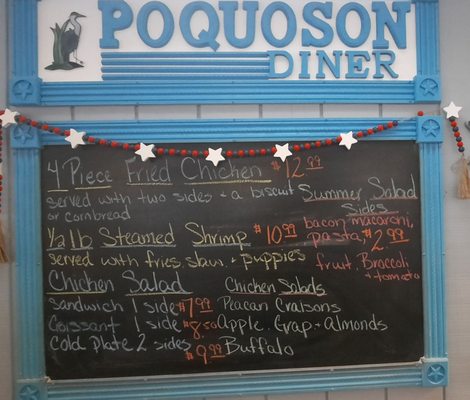 POQUOSON
DINER
4 Piece Fried Chicken $12.99
served with two sides + a biscuit
or cornbread
Summer Salad
Sides
bacon macaroni,
pasta, $2.99
fruit, Broccoli
+ tomato
1/2 lb Steamed Shrimp $10.99
served with fries, slaw, + puppies
Chicken Salad
Sandwich 1 side $7.99
Croissant 1 side $8.50
Cold Plate 2 sides $9.99
Chicken Salads
Peacan Craisons
Apple, Grap + Almonds
Buffalo